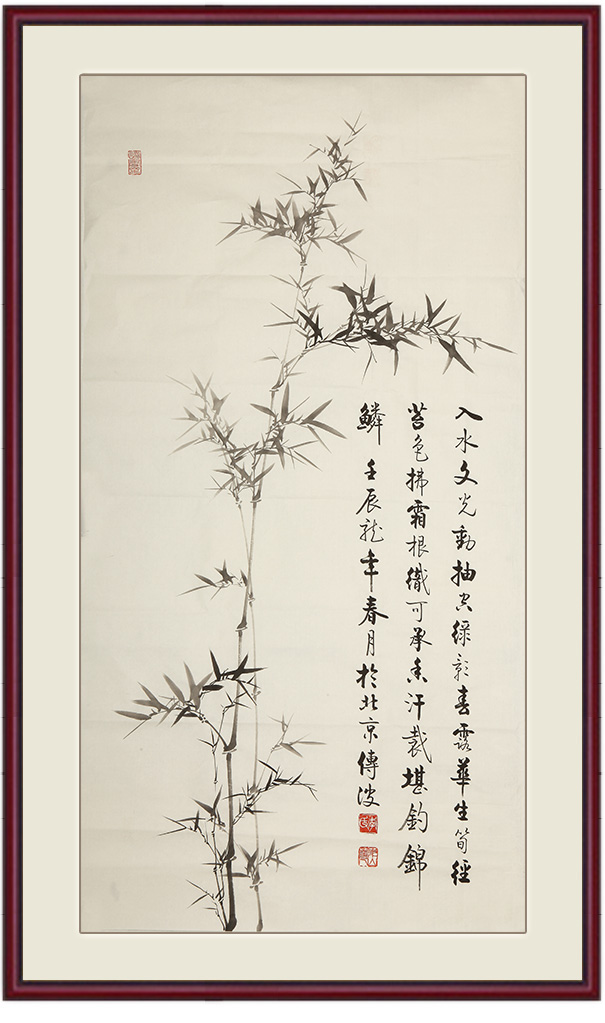 入水文光動抽空綠影春露華生筍徑
苔色拂霜根織可承香汗裁堪釣錦
鱗 壬辰龍年春月於北京傳波